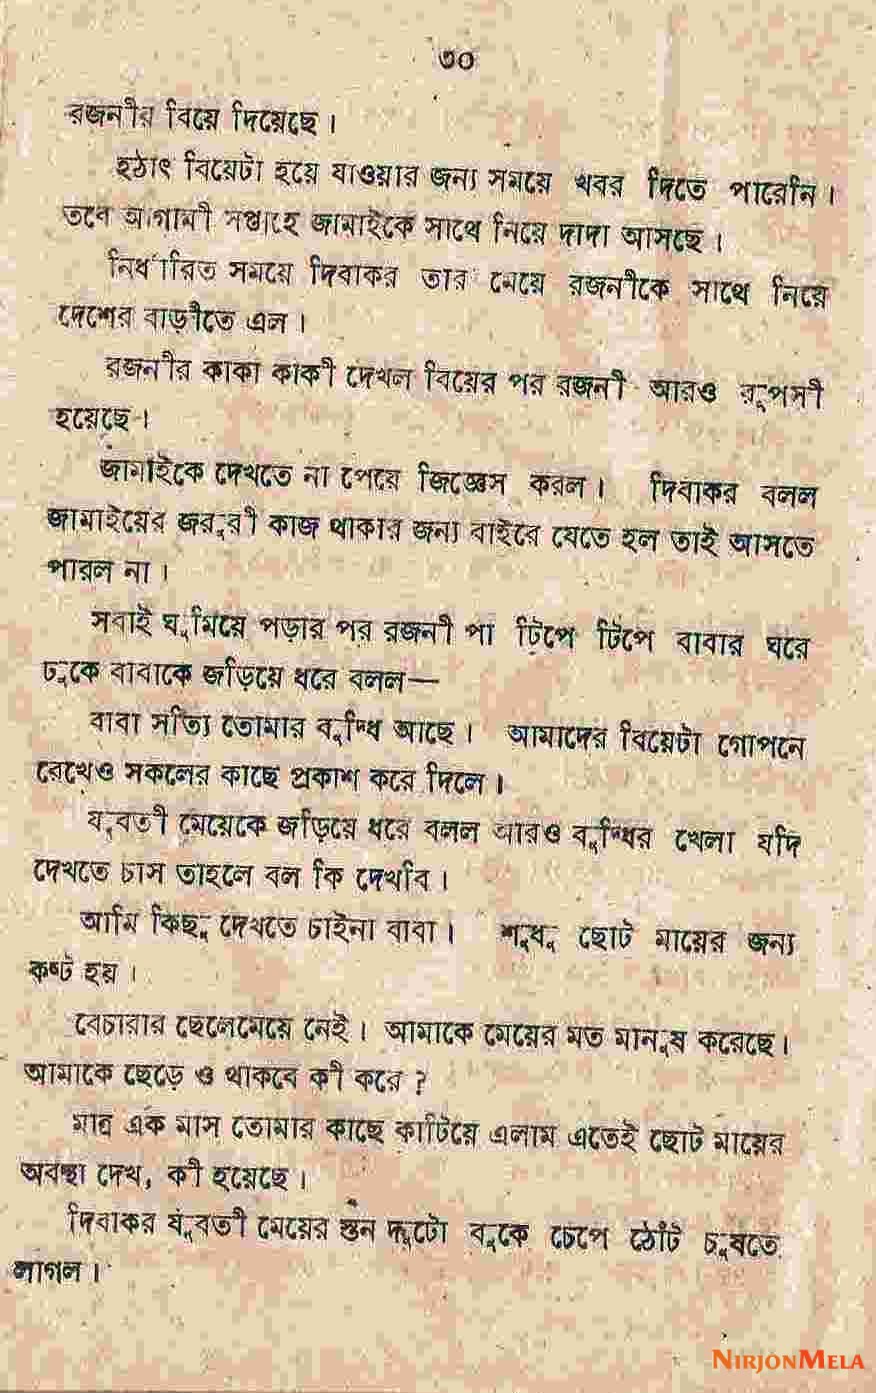 ৩০
রজনীর বিয়ে দিয়েছে।
হঠাৎ বিয়েটা হয়ে যাওয়ার জন্য সময়ে খবর দিতে পারেনি।
তবে আগামী সপ্তাহে জামাইকে সাথে নিয়ে দাদা আসছে।
নির্ধারিত সময়ে দিবাকর তার মেয়ে রজনীকে সাথে নিয়ে
দেশের বাড়ীতে এল।
রজনীর কাকা কাকী দেখল বিয়ের পর রজনী আরও রূপসী
হয়েছে।
জামাইকে দেখতে না পেয়ে জিজ্ঞেস করল। দিবাকর বলল
জামাইয়ের জরুরী কাজ থাকার জন্য বাইরে যেতে হল তাই আসতে
পারল না।
সবাই ঘুমিয়ে পড়ার পর রজনী পা টিপে টিপে বাবার ঘরে
ঢুকে বাবাকে জড়িয়ে ধরে বলল—
বাবা সত্যি তোমার বুদ্ধি আছে। আমাদের বিয়েটা গোপনে
রেখেও সকলের কাছে প্রকাশ করে দিলে।
যুবতী মেয়েকে জড়িয়ে ধরে বলল আরও বুদ্ধির খেলা যদি
দেখতে চাস তাহলে বল কি দেখবি।
আমি কিছু দেখতে চাইনা বাবা। শুধু ছোট মায়ের জন্য
কষ্ট হয়।
বেচারার ছেলেমেয়ে নেই। আমাকে মেয়ের মত মানুষ করেছে।
আমাকে ছেড়ে ও থাকবে কী করে?
মাত্র এক মাস তোমার কাছে কাটিয়ে এলাম এতেই ছোট মায়ের
অবস্থা দেখ, কী হয়েছে।
দিবাকর যুবতী মেয়ের স্তন দুটো বুকে চেপে ঠোঁট চুষতে
লাগল।
NIRJONMELA